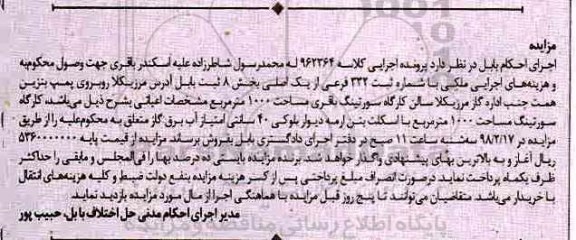 مزایده
اجرای احکام بابل در نظر دارد پرونده اجرایی کلاسه ۹۶۲۳۶۴ له محمدرسول شاطرزاده علیه اسکندر باقری جهت وصول محکوم‌به
و هزینه‌های اجرایی ملکی با شماره ثبت ۳۳۲ فرعی از یک اصلی بخش ۸ ثبت بابل آدرس مرزیکلا روبروی پمپ بنزین
همت جنب اداره گاز مرزیکلا سالن کارگاه سورتینگ باقری مساحت ۱۰۰۰ مترمربع مشخصات اعیانی بشرح ذیل می‌باشد، کارگاه
سورتینگ مساحت ۱۰۰۰ مترمربع با اسکلت بتن ارمه دیوار بلوکی ۴۰ سانتی امتیاز آب برق، گاز متعلق به محکوم‌علیه را از طریق
مزایده در ۹۸/۲/۱۷ سه‌شنبه ساعت ۱۱ صبح در دفتر اجرای دادگستری بابل بفروش برساند مزایده از قیمت پایه ۵۳۶۰۰۰۰۰۰۰
ریال آغاز و به بالاترین بهای پیشنهادی واگذار خواهد شد. برنده مزایده بایستی ده درصد بها را فی‌المجلس و مابقی را حداکثر
ظرف یکماه پرداخت نماید درصورت انصراف مبلغ پرداختی پس از کسر هزینه مزایده بنفع دولت ضبط و کلیه هزینه‌های انتقال
با خریدار می‌باشد. متقاضیان می‌توانند تا پنج روز قبل مزایده با هماهنگی اجرا از مال مورد مزایده بازدید نمایند.
مدیر اجرای احکام مدنی حل اختلاف بابل، حبیب پور
پایگاه اطلاع رسانی مناقصه و مزایده